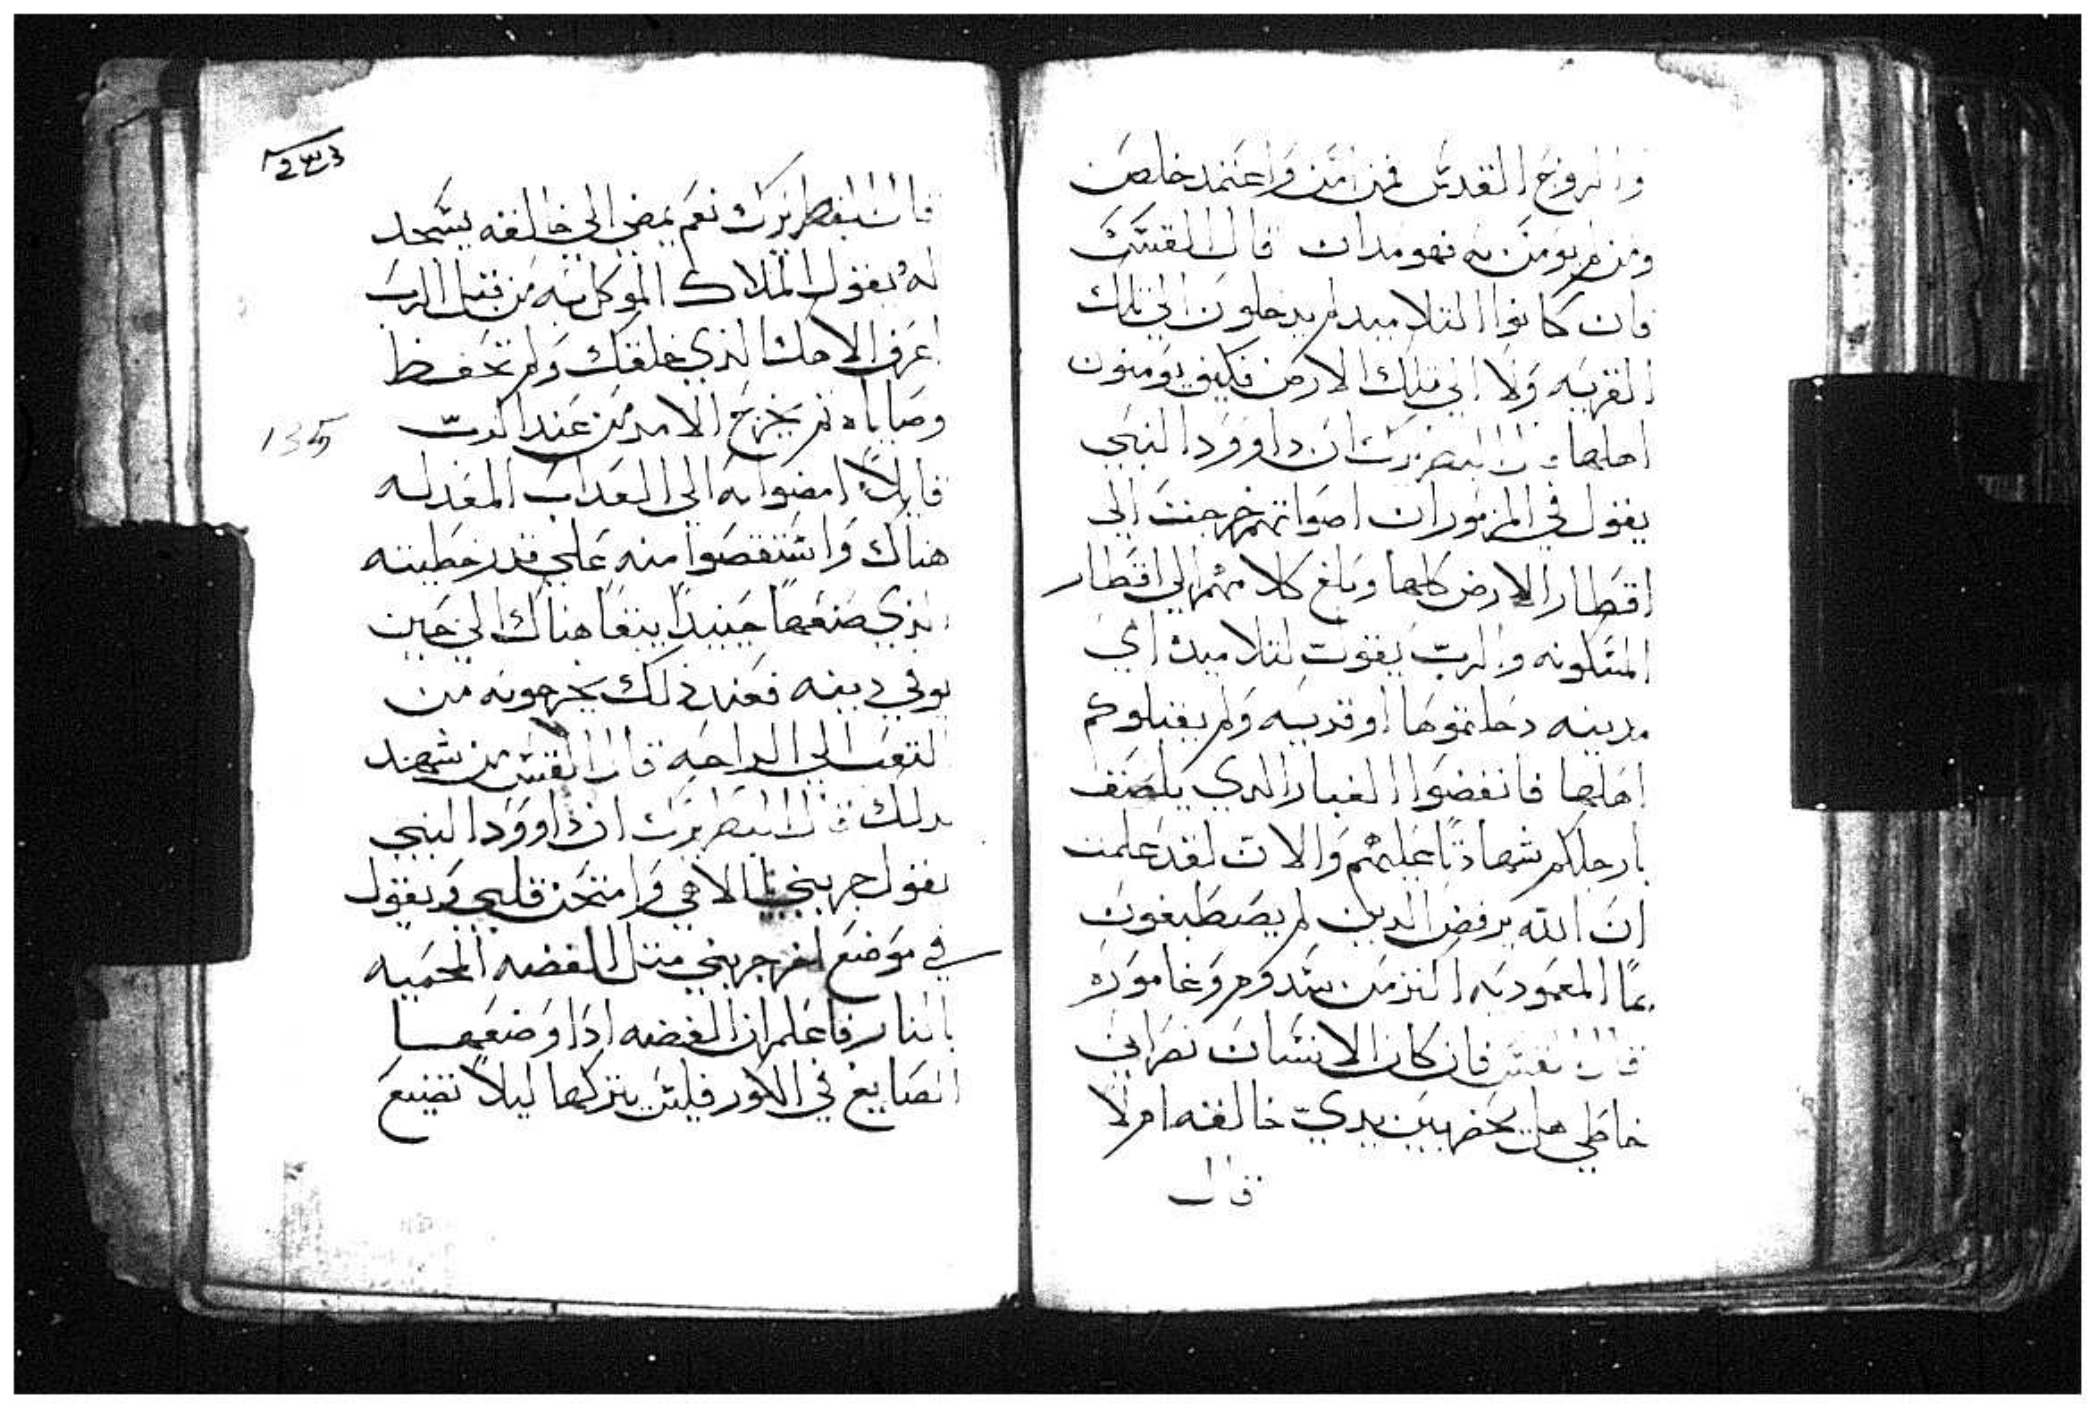 والروح القدس فمن امن واعتمد خلص
ومن لم يومن به فهو مدان قال القس
فان كانوا التلاميد لم يدخلون الي تلك
القريه ولا الي تلك الارض فكيف يومنون
اهلها قال البطريرك ان داوود النبي
يقول في المزمور ان اصواتهم خرجت الي
اقطار الارض كلها وبلغ كلامهم الي اقطار
المسكونه والرب يقول لتلاميده اي
مدينه دخلتموها او قريه ولم يقبلوكم
اهلها فانفضوا الغبار الدي يلصق
بارجلكم شهادتا عليهم والان لقد علمت
ان الله يرفض الدين لم يصطبغون
بما المعموديه اكتر من سدوم وغاموره
قال القس فان كان الانسان نصراني
خاطي هل يحضر بين يدي خالقه ام لا
قال
قال البطريرك نعم يمضي الي خالقه يسجد
له يقول الملاك الموكل به من قبل الرب
اعرف الاهك الذي خلقك ولم تحفظ
وصاياه تم يخرج الامر من عند الرب
قايلاً امضوا به الي العداب المعد له
هناك واستقصوا منه علي قدر خطيته
الذي صنعها حينيداً يبقا هناك الي حين
يوفي دينه فعند ذلك يخرجونه من
التعب الي الراحه قال القس من شهد
بدلك قال البطريرك ان داوود النبي
يقول جربني يا الاهي وامتحن قلبي ويقول
في موضع اخر جربني متل الفضه المحميه
بالنار فاعلم ان الفضه ادا وضعها
الصايغ في الكور فليس يتركها ليلاً تضيع
135